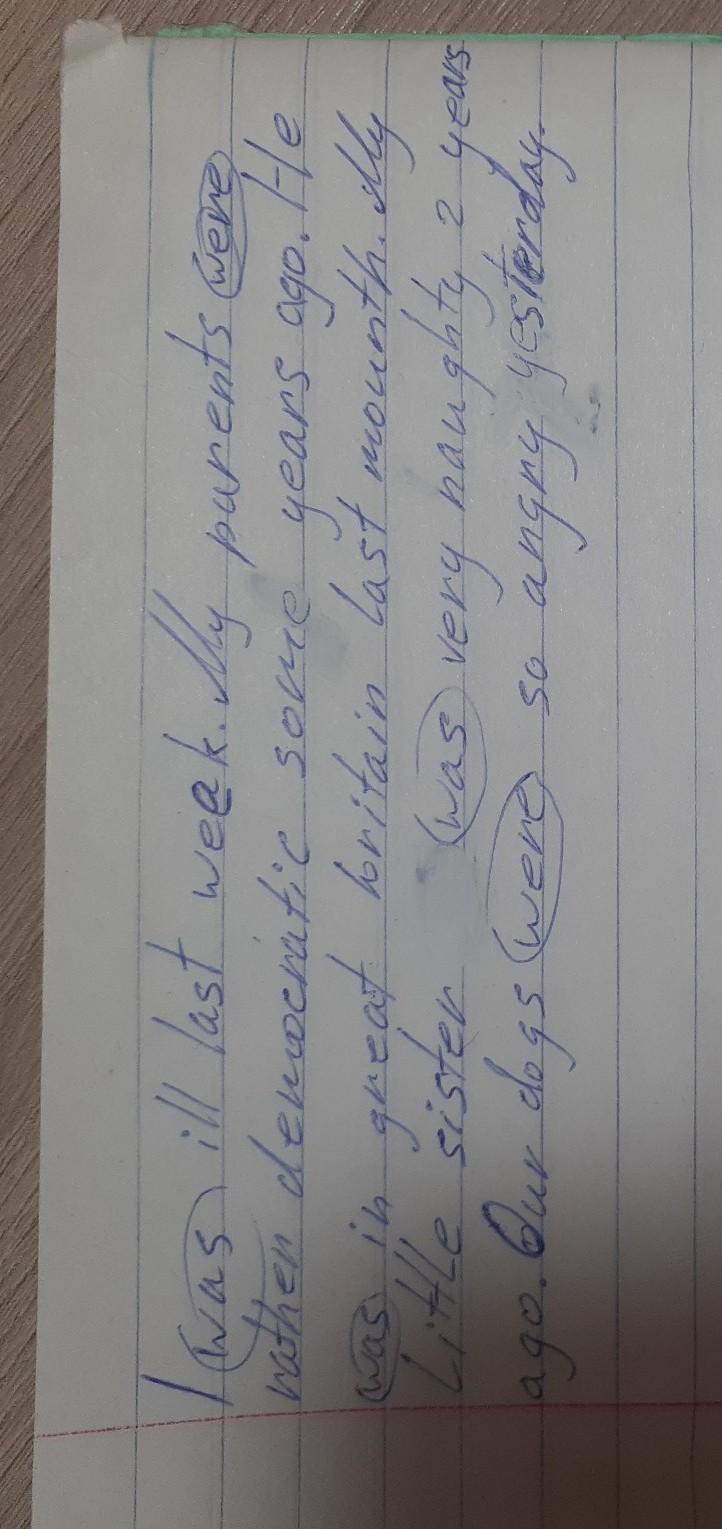 I was ill last weak. My parents were
rather democratic some years ago. He
was in great britain last mounth. My
Little sister was very naughty 2 years
ago. Our dogs were so angry yesterday.